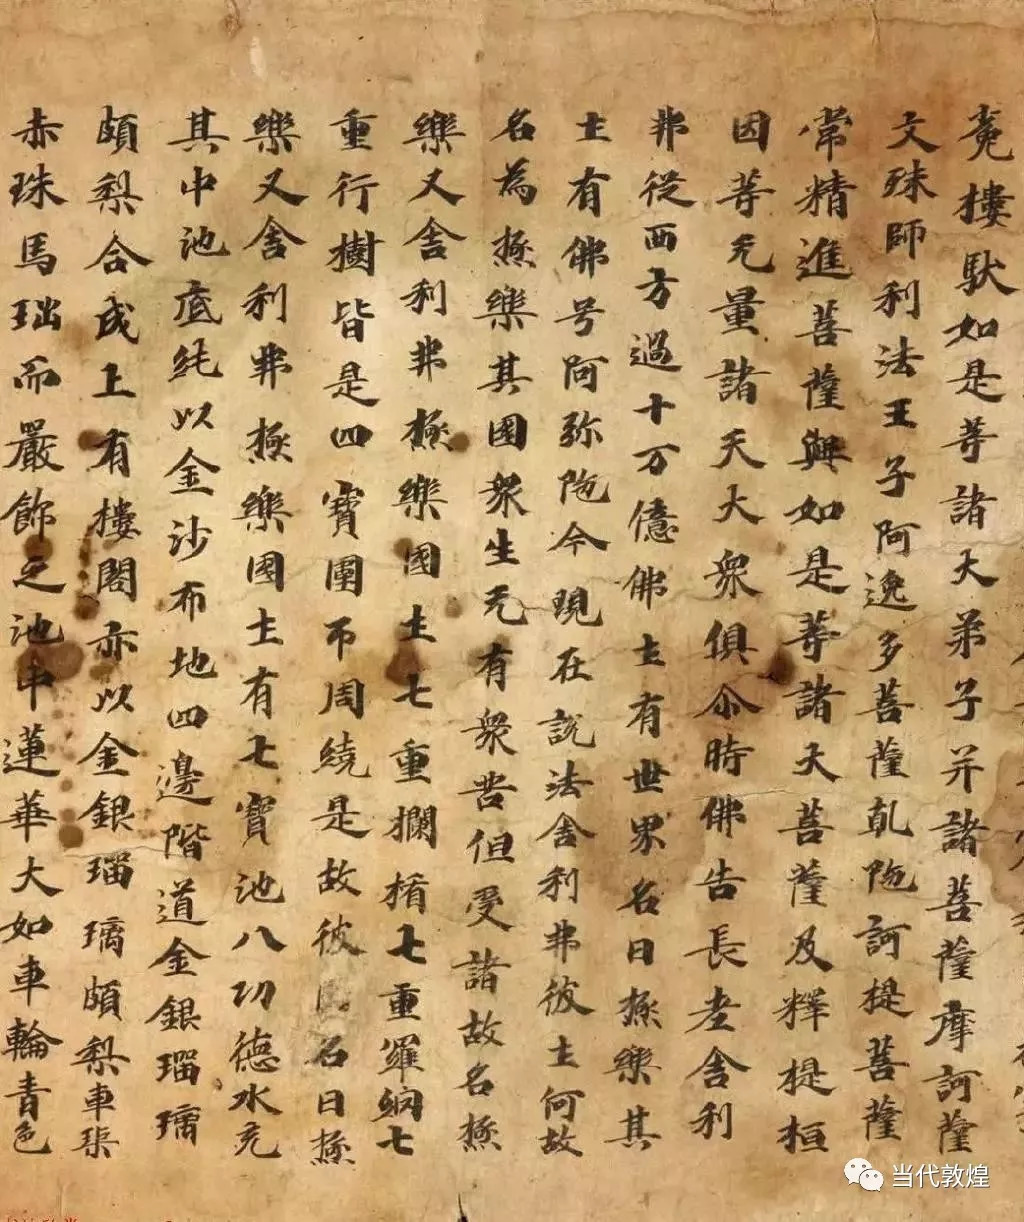 菟樓馱如是等諸大弟子并諸菩薩摩訶薩
文殊師利法王子阿逸多菩薩乹陁訶提菩薩
常精進菩薩與如是等諸大菩薩及釋提桓
因等无量諸天大衆俱尒時佛告長老舍利
弗從西方過十万億佛土有世界名曰極樂其
土有佛号阿弥陁今現在說法舍利弗彼土何故
名為極樂其國衆生无有衆苦但受諸故名極
樂又舍利弗極樂國土七重欄楯七重羅網七
重行樹皆是四寶圍帀周繞是故彼國名曰極
樂又舍利弗極樂國土有七寶池八功德水充
其中池底純以金沙布地四邊階道金銀瑠璃
頗梨合成上有樓閣亦以金銀瑠璃頗梨車璖
赤珠馬瑙而嚴飾之池中蓮華大如車輪青色
当代敦煌